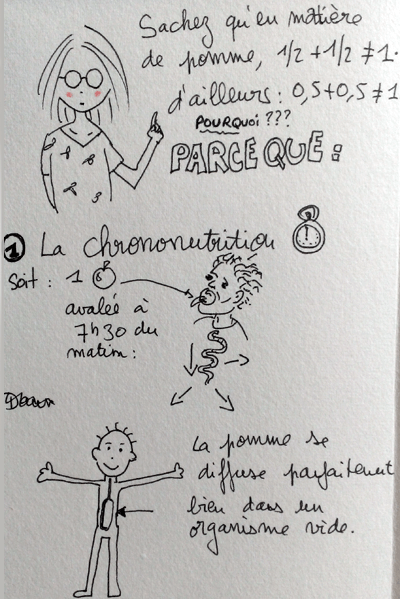 Sachez qu'en matière
de pomme, 1/2 + 1/2 ≠ 1.
d'ailleurs : 0,5+0,5 ≠ 1
POURQUOI ???
PARCE QUE :
1 La chrononutrition
Soit : 1
avalée à
7h30 du
matin :
La pomme se
diffuse parfaitement
bien dans un
organisme vide.